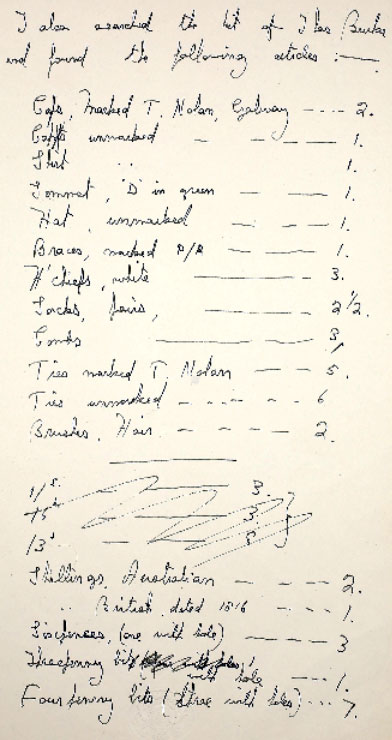 I also searched the kit of Thos Burke
and found the following articles :—
Caps, marked T. Nolan, Galway ---- 2.
Caps unmarked - - - - 1.
Shirt " 1.
"D" in green — — 1.
Hat, unmarked — - — 1.
Braces, marked P/R — — 1.
H'chiefs, white — 3.
Socks, pairs, — 2 1/2.
Combs — 3,
Ties marked T. Nolan — — 5.
Ties unmarked - - - - 6
Brushes, Hair - — — 2.
1/s — 3.
— 3
/3d — — 8
Shillings Australian - - - 2.
" British dated 1816 - - - 1.
Sixpences, (one with hole) — — 3
Threepenny bits
with hole --- 1.
Fourpenny bits (three with holes) --- 7.